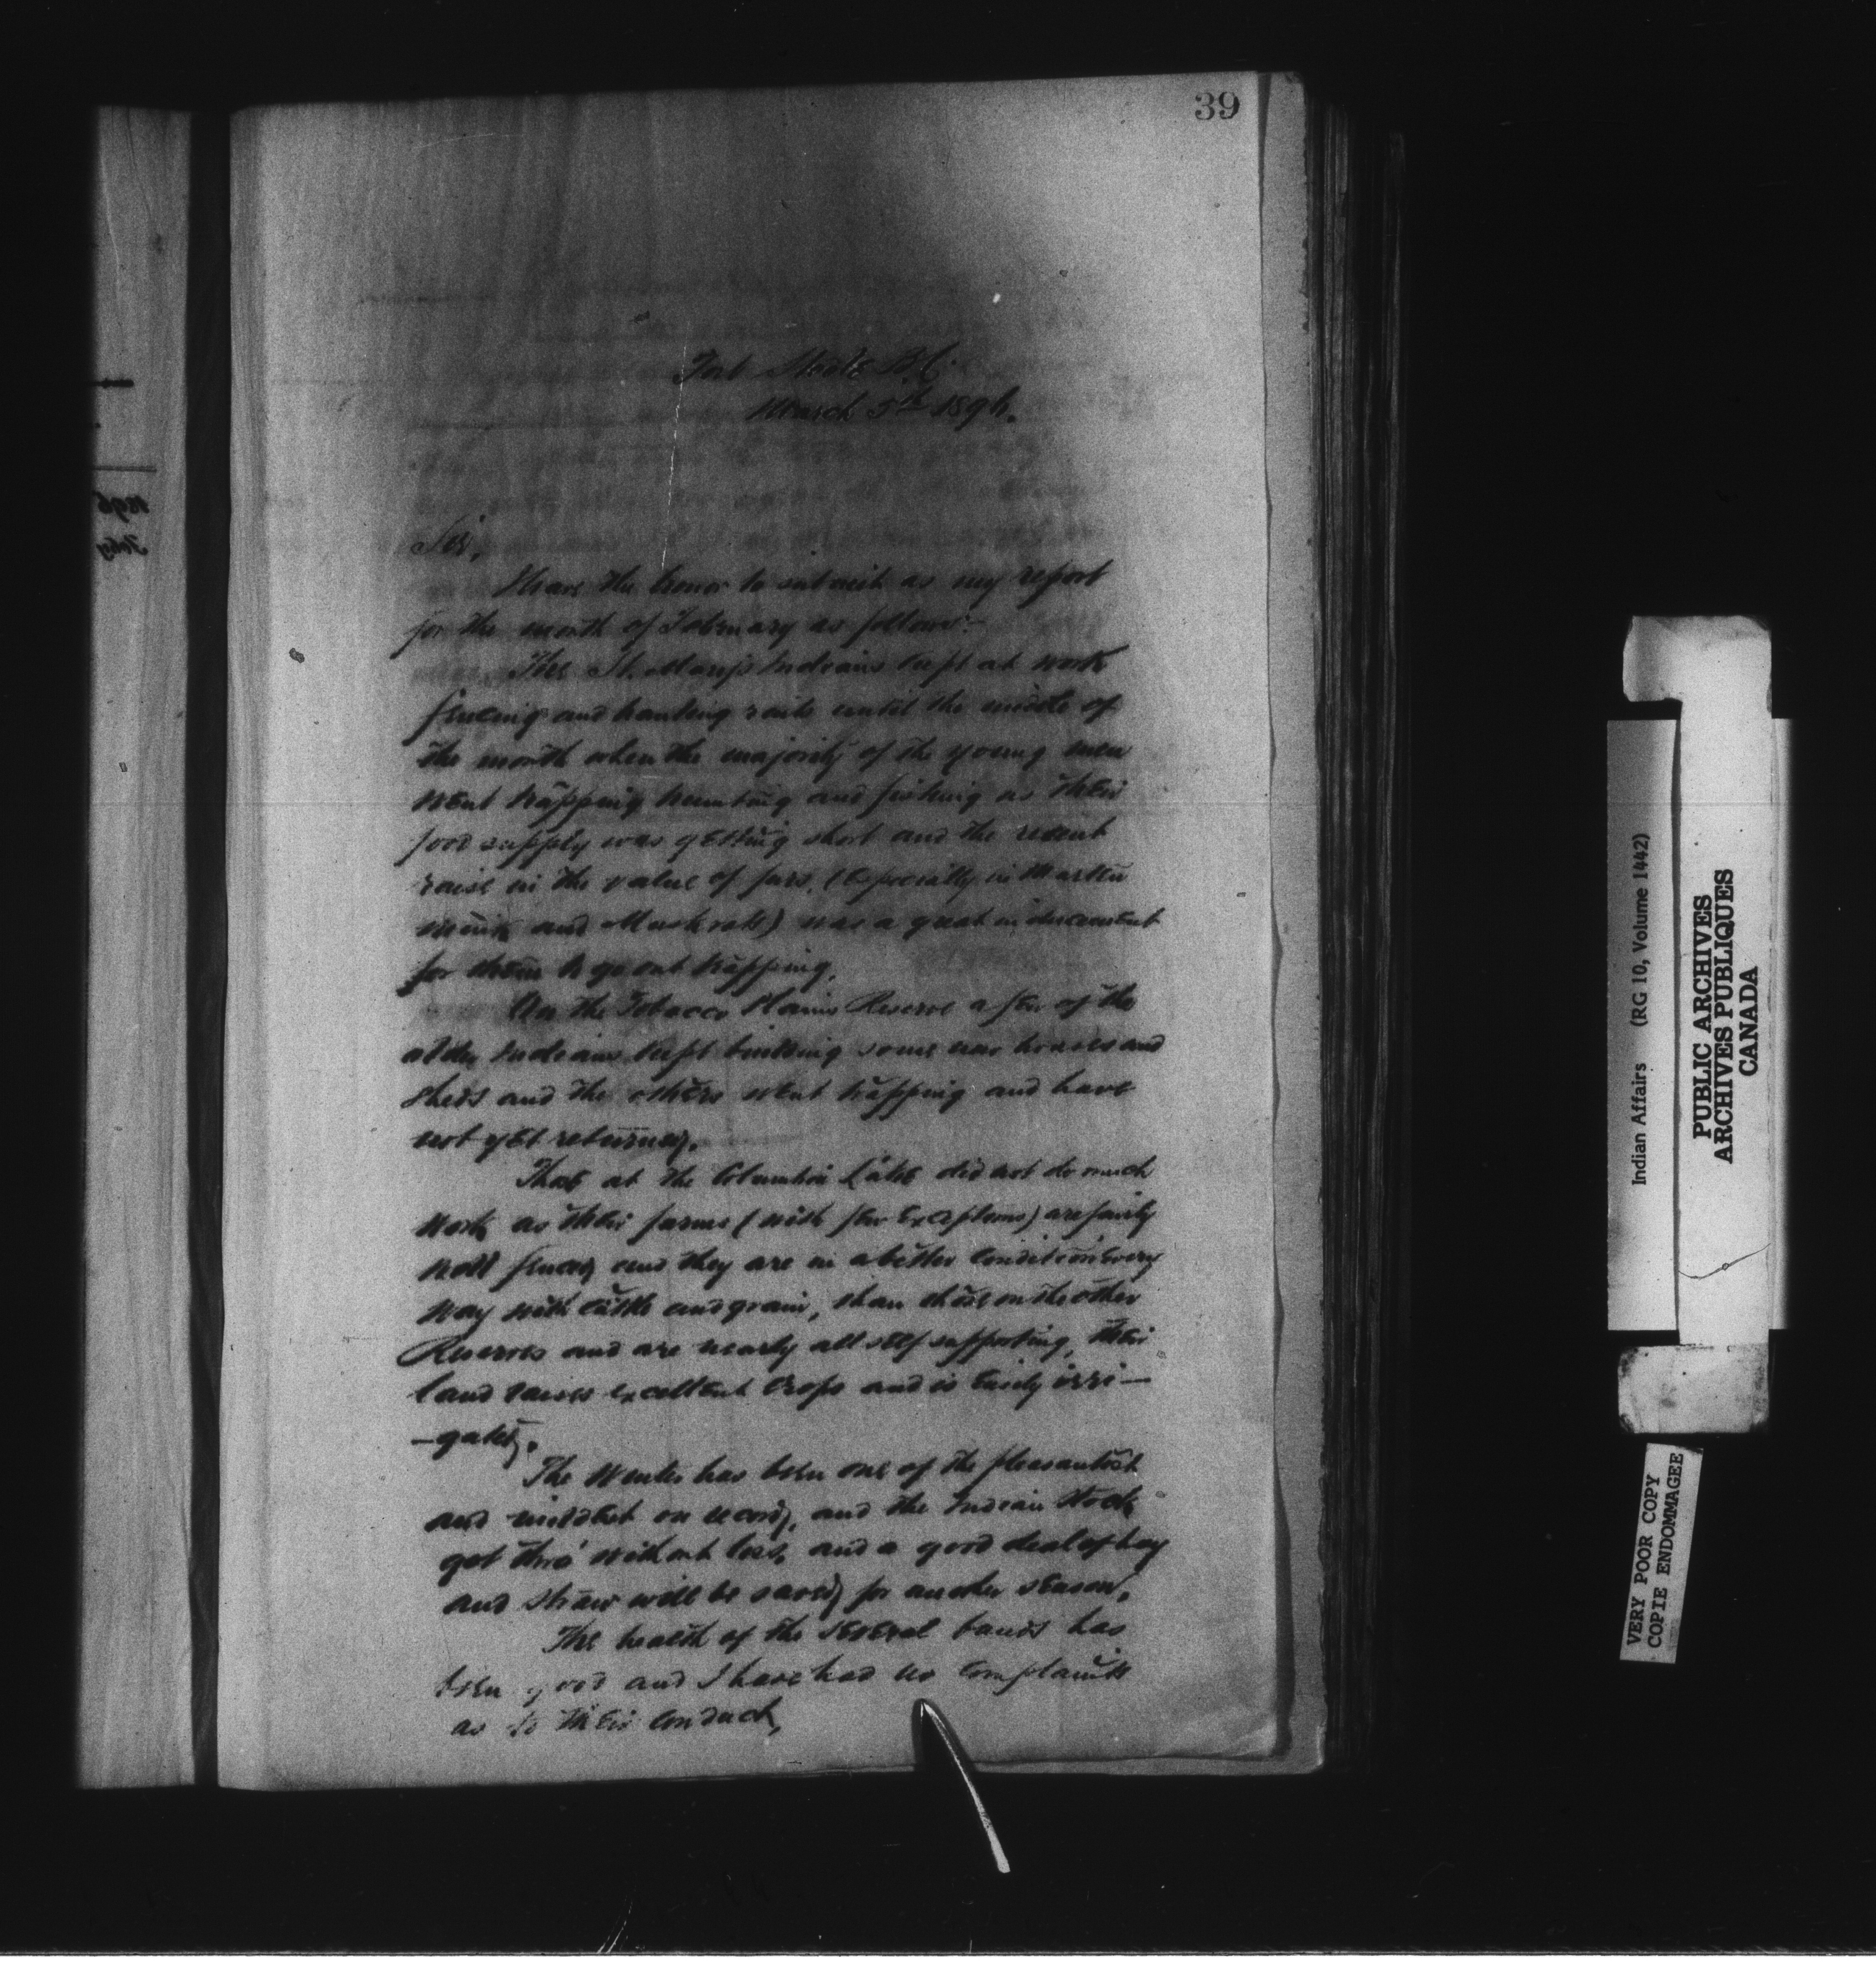 39
Fort Steele B.C.
March 5th 1896.
Sir,
I have the honor to submit as my report
for the month of February as follows:-
The St. Mary's Indians kept at work
fencing and hauling rails until the middle of
the month when the majority of the young men
went trapping hunting and fishing as their
food supply was getting short and the recent
raise in the value of furs, (Especially in Marten
mink and Muskrats) was a great inducement
for them to go out trapping.
On the Tobacco Plains Reserve a few of the
older Indians kept building some new houses and
sheds and the others went trapping and have
not yet returned.
Those at the Columbia Lake did not do much
work as their farms (with few Exceptions) are fairly
well fenced and they are in a better condition Every
way with cattle and grain, than those on the other
Reserves and are nearly all self supporting, their
land raises excellent crops and is Easily irri-
-gated.
The Winter has been one of the pleasantest
and mildest on record, and the Indian Stock
got thro' without loss, and a good deal of hay
and straw will be saved for another season.
The health of the several bands has
been good and I have had no complaints
as to their conduct,
1896
Feby
Indian Affairs (RG 10, Volume 1442)
PUBLIC ARCHIVES
ARCHIVES PUBLIQUES
CANADA
VERY POOR COPY
COPIE ENDOMMAGEE